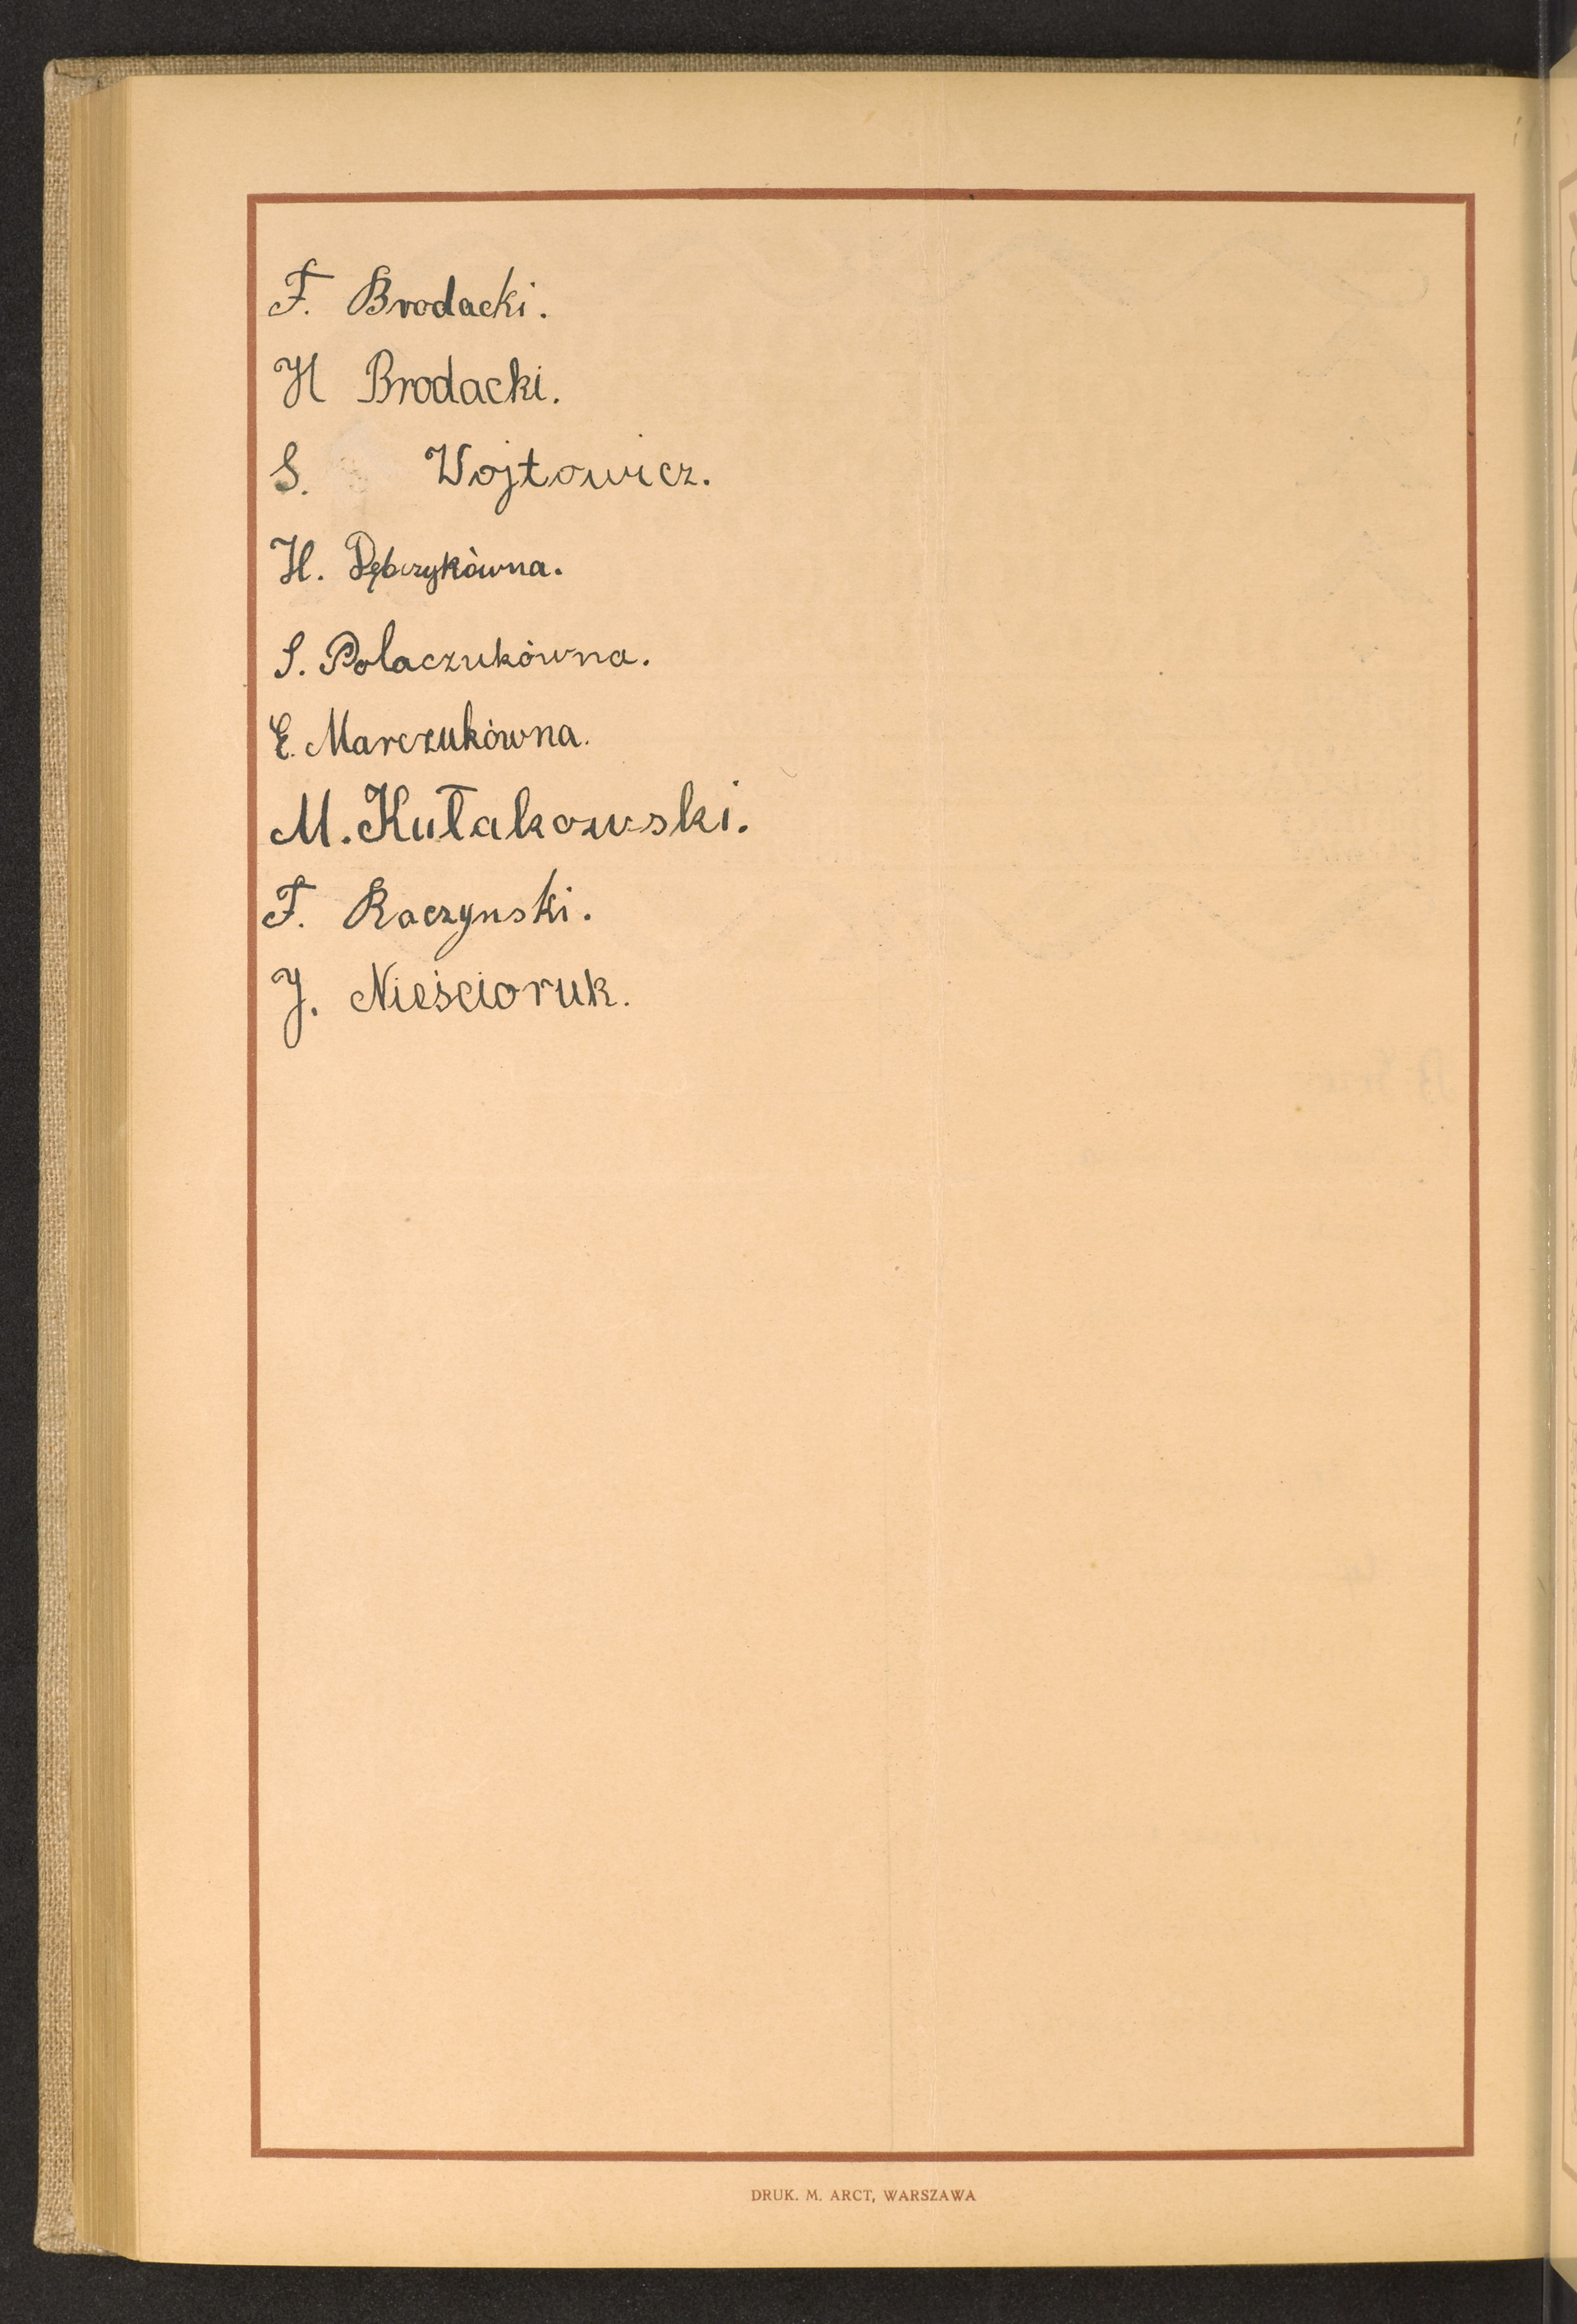 F. Brodacki.
H Brodacki.
S. Wojtowicz.
H. Dębczykówna.
S. Polaczukówna.
E. Marczukówna.
M. Kułakowski.
F. Raczynski.
J. Nieścioruk.
DRUK. M. ARCT, WARSZAWA